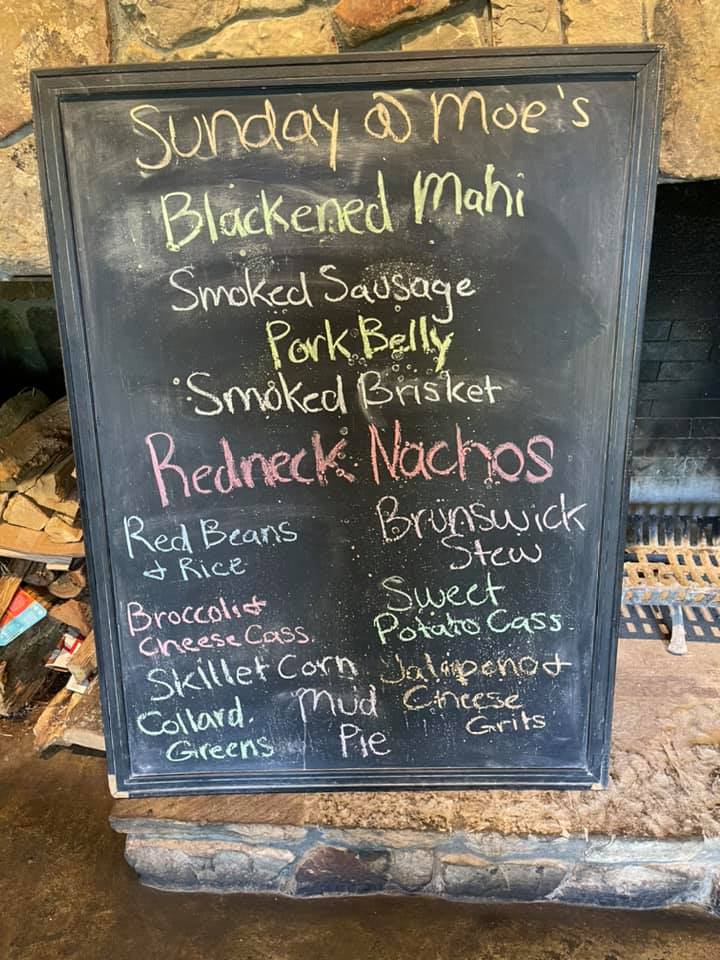 Sunday @ Moe's
Blackened Mahi
Smoked Sausage
Pork Belly
Smoked Brisket
Redneck Nachos
Red Beans
& Rice
Brunswick
Stew
Broccoli &
Cheese Cass.
Sweet
Potato Cass
Skillet Corn
Jalapeno &
Cheese
Grits
Collard.
Greens
Mud
Pie